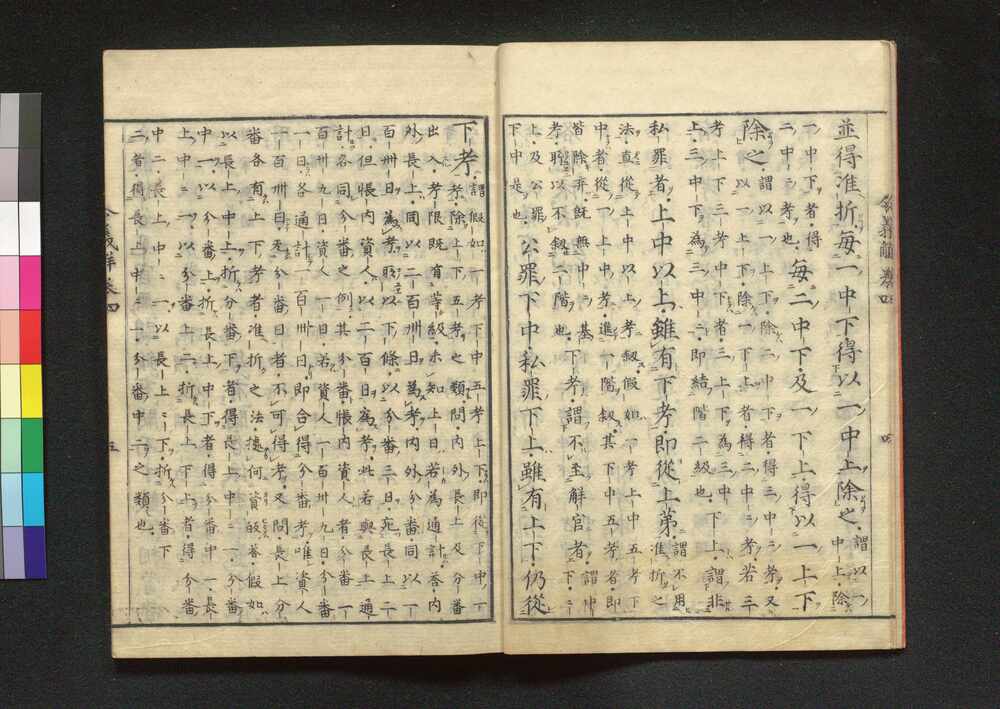 並得准折毎一中下得以一中上除之謂以一中上除
一中下者得
二中二考也毎二中下及一下上得以一上下
除之謂以一上下除二中下者得三中二考又
以一上下除一下上者得二中二考若三
考上下三考中下者三上下為三中下上謂非
上三中下為三中二即結階二級也
私罪者上中以上雖有下考即從上第謂不用准折之
法直從上中以上考叙假如一考上中五考下
中者從一上中考進一階叙其下中五考者即
皆除弃既無中二基下考謂不至解官者謂中
考聴以不叙二階也下二
上及公罪公罪下中私罪下上雖有上下仍從
下中是也
下考謂假如一考下中五考上下即從下中一
考除上下五考之類問内外長上及分番
出入考限既有等級未知上日若為通計荅内
外長上同以二百卌日為考内外分番同以一
百卌日為考以下條以分番三日宛長上二
日但帳内資人以二百日為考此若與長上通
計各同分番之例其分番帳内資人者分番一
百卌九日資人一日若資人一百卌九日分番
一日各通計一百卌日即合得分番考唯資人
一百卌日充分番日者不可得考又問長上分
番各有上下考者准折之法據何資叙荅假如
以長上中上折分番下者得長上中二一分番
中一以分番上折長上中下者得分番中一長
上中二一以分番上二折長上下上者得分番
中二長上中二一以長上上下折分番下
二者得長上中二一分番中二之類也
令義解巻四